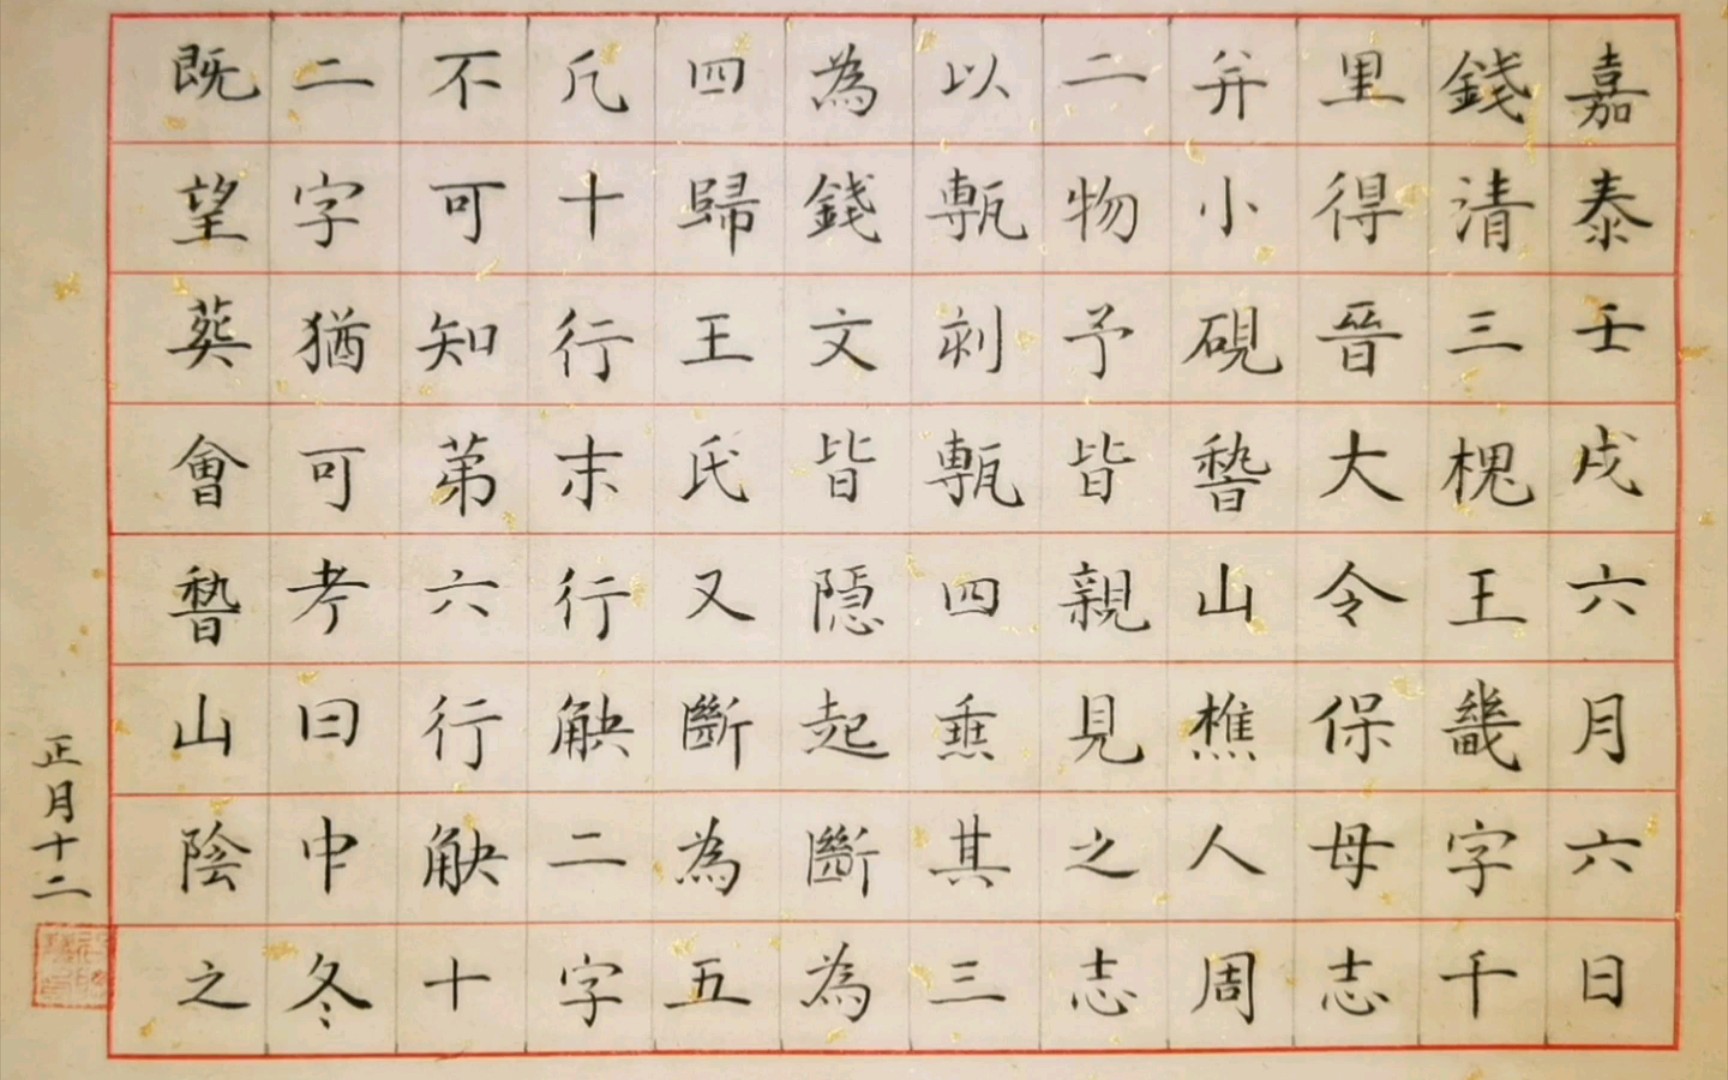 嘉泰壬戌六月六日
錢清三槐王畿字千
里得晉大令保母志
并小硯嵇山樵人周
二物予皆親見之志
以甎刻甎四垂其三
為錢文皆隱起斷為
四歸王氏又斷為五
凡十行末行觖二字
不可知苐六行觖十
二字猶可考曰中冬
既望葬會嵇山陰之
正月十二